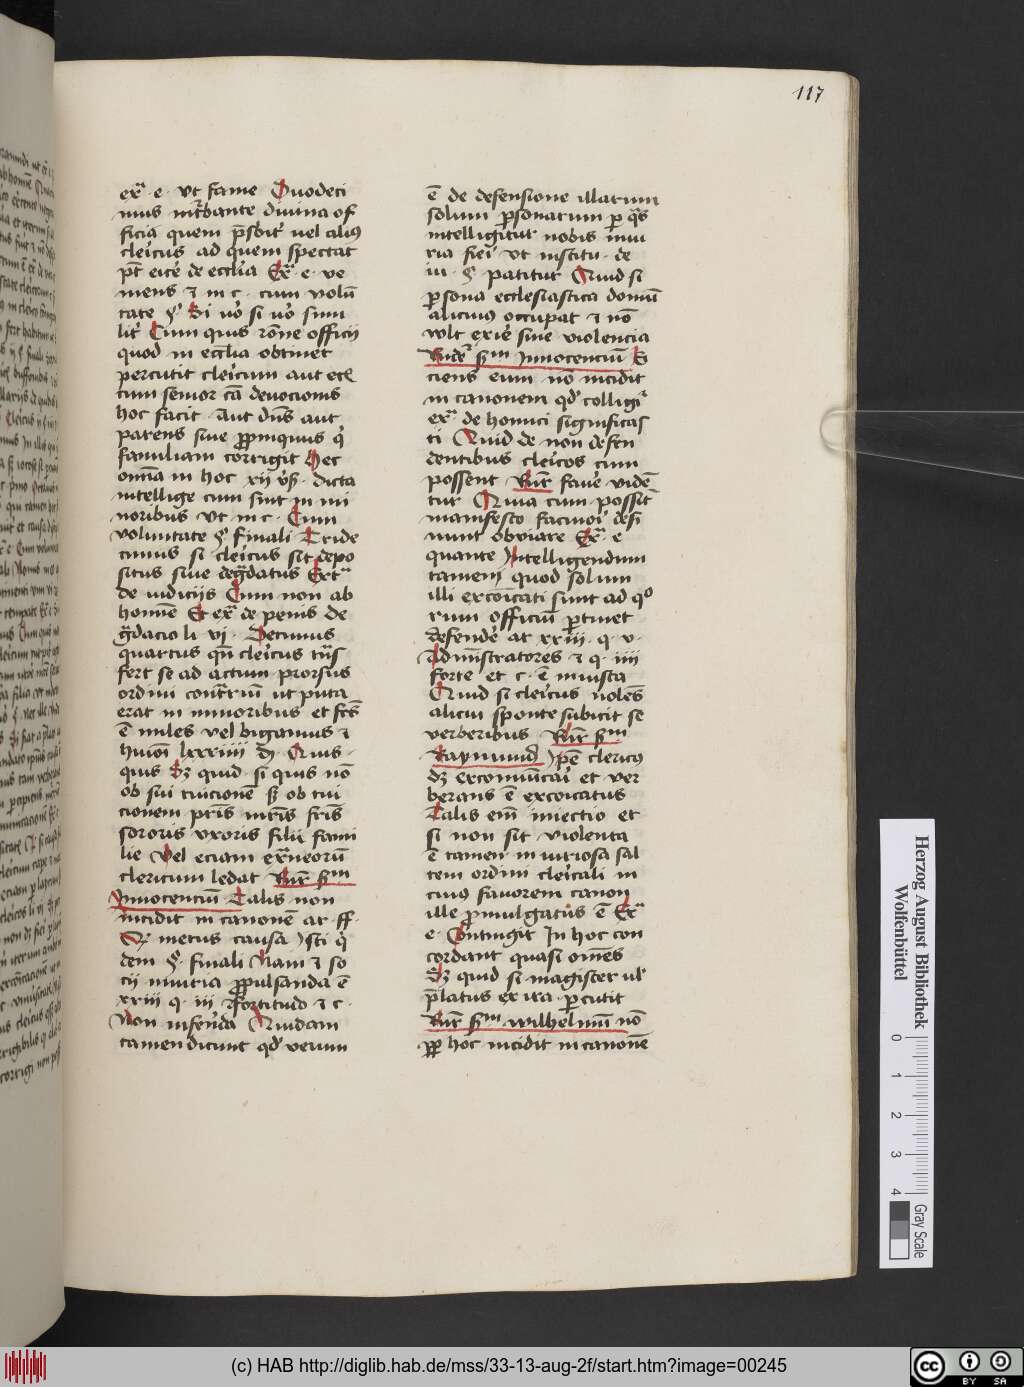 117
exª e ut fame Duodeci
mus mťbante divina of
ficia quem p̄sbit̉ vel alius
clei̓cus ad quem spectat
pt̄ eice̓ de eccl̄ia Exª e ve
niens ⁊ in c cum volū
tate § Si v̊o si v̊o simi
lit̓ Cum quis rōne officij
quod in eccl̄ia obtinet
percutit clei̓cum aut etē
cum senior cā devocionis
hoc facit aut dn̄s aut
parens sive ꝓpinquus q̓
familiam corrigit Hec
omīa in hoc xij v̓ß dicta
intellige cum sint in mi
noribus ut in c Cum
voluntate § finali Tride
cimus si clei̓cus sit depo
situs sive deg̓datus Extª
de iudiciis Cum non ab
homīe Et exª de penis de
g̓dacio li vj Decimus
quartus qn̄ clei̓cus tn̄s
fert se ad actum prorsus
ordini contr̓riū ut puta
erat in minoribus et fc̄s
ē miles vel bigamus ⁊
huiōi lxxxiiij di Quis
quis Sꝫ quid si quis nō
ob sui tuicionē sꝫ ob tui
cionem pr̄is mr̄is fr̄is
sororis uxoris filii fami
lie vel eciam ext̓neorū
clericum ledat Rn̄r ẜm
Innocenciū Talis non
incidit in canonē ar ff
Qꝫ metus causa Isti q̓
dem § finali Nam ⁊ so
cij iniuria ꝓpulsanda ē
xxiij q iij Fortitudo ⁊ c
Non infe̓nda Quidam
tamen dicunt qd̓ verum
ē de defensione illarum
solum ꝑsonarum ꝑ q̓s
intelligitur nobis iniu
ria fiei̓ ut institu de
iu § patitur Quid si
ꝑsona ecclesiastica domū
alicuius occupat ⁊ nō
vult exire̓ sine violencia
Rndꝫ ẜm Innocenciū E
ciens eum nō incidit
in canonem qd̓ colligi̓
exª de homici significas
ti Quid de non defen
dentibus clei̓cos cum
possent Rn̄r fave̓ viden̄
tur Quia cum possit̄
manifesto facinoi̓ desi
nunt obviare Exª e
quante Intelligendum
tamem quod solum
illi excōicati sunt ad q̊
rum officiū ꝑtinet
defende̓ ar xxiij q v
Administratores ⁊ q iiij
forte et c ē iniusta
Quid si clei̓cus volēs
alicui sponte subicit se
verberibus Rn̄r ẜm
Raymund̓ Ipē clericus
dꝫ excommunicai̓ et ver
berans ē excōicatus
Talis em̄ iniectio et
si non sit violenta
ē tamen iniuriosa sal
tem ordini clei̓cali in
cuius favorem canon
ille ꝓmulgatus ē Exª
e Contingit In hoc con
cordant quasi om̄es
Sꝫ quid si magister vl̓
p̄latus ex ira ꝑcutit
Rn̄r ẜm wilhelmū nō
ꝓp hoc incidit in canonē
Herzog August Bibliothek
Wolfenbüttel
0 1 2 3 4
Gray Scale
(c) HAB http://diglib.hab.de/mss/33-13-aug-2f/start.htm?image=00245
cc BY SA